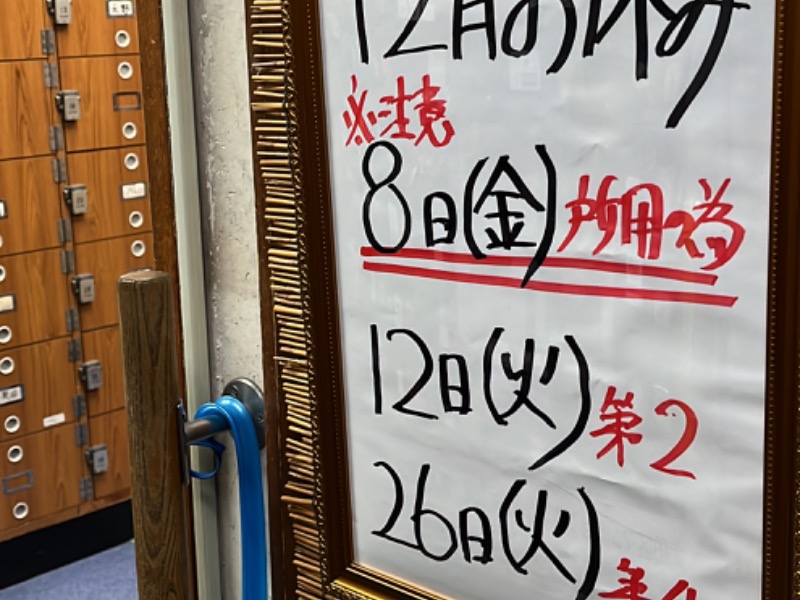 12月お休み
※注意
8日(金)所用の為
12日(火)第2
26日(火)